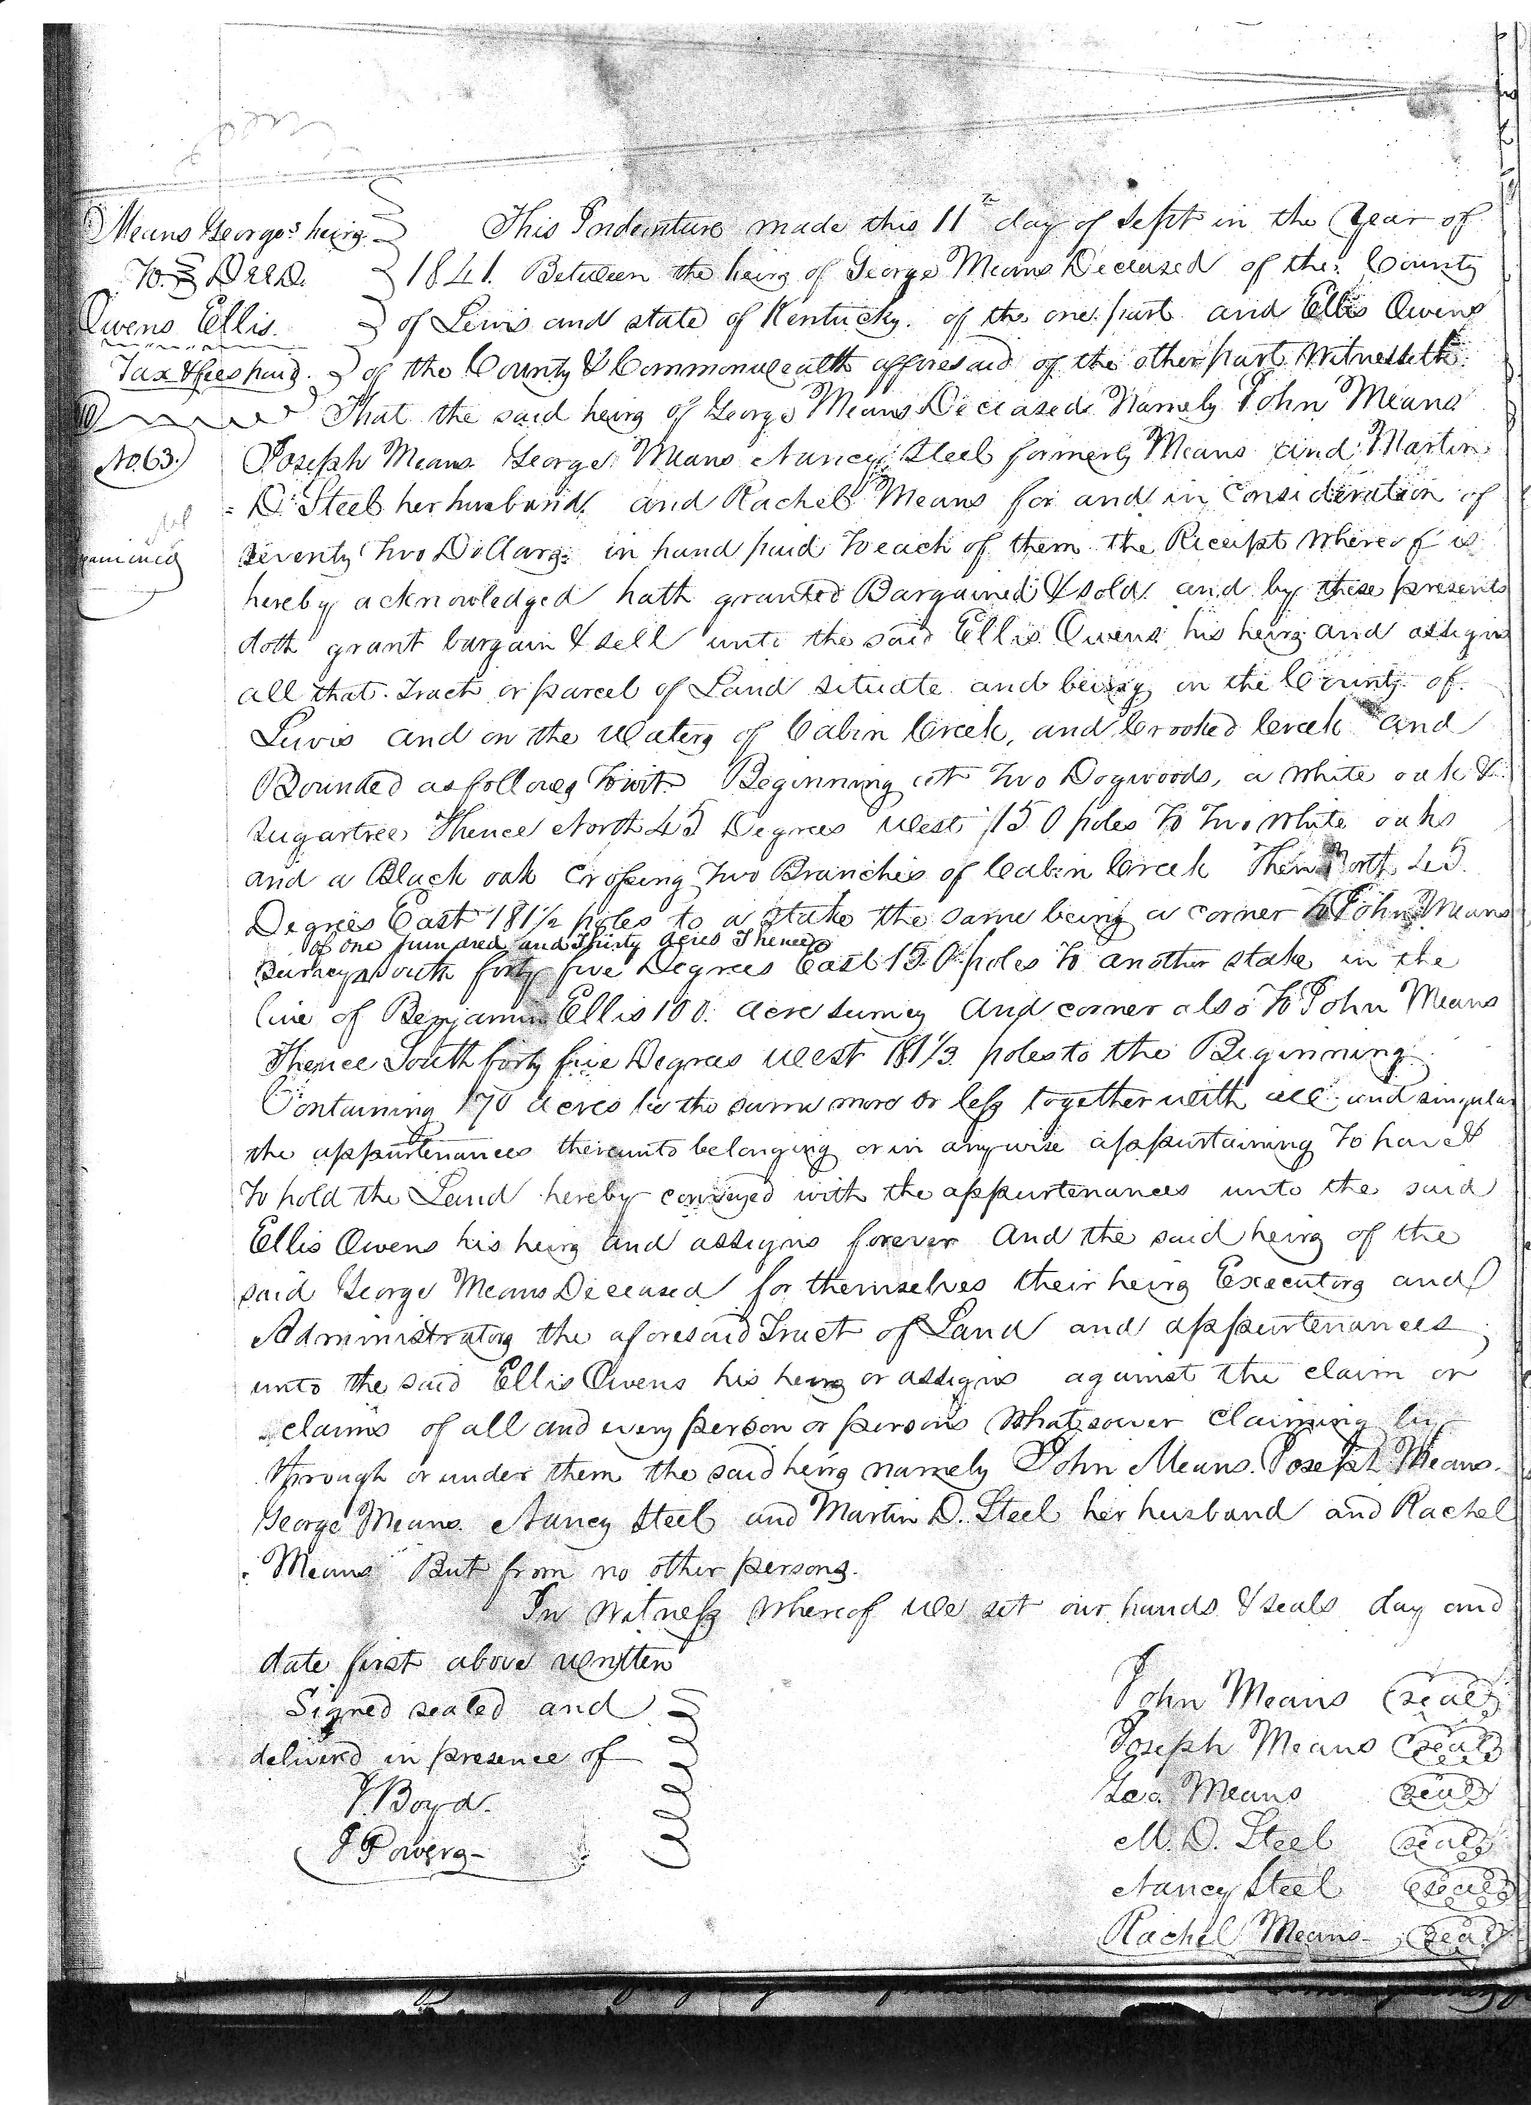 Means George's heirs
To } Deed
Owens Ellis
Tax & fees paid.
No. 63.
This Indenture made this 11th day of Sept in the Year of
1841. Between the heirs of George Means Deceased of the County
of Lewis and state of Kentucky. of the one part and Ellis Owens
of the County & Commonwealth afforesaid of the other part Witnesseth.
That the said heirs of George Means Deceased Namely John Means
Joseph Means George Means Nancy Steel formerly Means and Martin
D. Steel her husband, and Rachel Means for and in Consideration of
seventy Two Dollars: in hand paid To each of them the Receipt Whereof is
hereby acknowledged hath granted Bargained & sold and by these presents
doth grant bargain & sell unto the said Ellis Owens his heirs and assigns
all that Tract or parcel of Land situate and being in the County of
Lewis and on the Waters of Cabin Creek, and Crooked Creek and
Bounded as follows Towit. Beginning at Two Dogwoods, a White oak &
sugartree Thence North 45 Degrees West 150 poles To Two White oaks
and a Black oak Crossing Two Branches of Cabin Creek Then North 45
Degrees East 181½ poles to a stake the same being a corner To John Means
of one hundred and Thirty acres Thence
Survey south forty five Degrees East 150 poles To another stake in the
line of Benjamin Ellis 100. acre survey And corner also To John Means
Thence South forty five Degrees West 181⅓ poles to the Beginning
Containing 170 acres be the same more or less together with all and singular
the appurtenances thereunto belonging or in anywise appurtaining To have &
To hold the Land hereby conveyed with the appurtenances unto the said
Ellis Owens his heirs and assigns forever And the said heirs of the
said George Means Deceased for themselves their heirs Executors and
Administrators the aforesaid Tract of Land and appurtenances
unto the said Ellis Owens his heirs or assigns against the claim or
claims of all and every person or persons Whatsoever Claiming by
through or under them the said heirs namely John Means. Joseph Means.
George Means. Nancy Steel and Martin D. Steel her husband and Rachel
Means But from no other persons.
In Witness Whereof We set our hands & seals day and
date first above Written
Signed sealed and
delivered in presence of
J. Boyd.
J Powers
John Means (seal)
Joseph Means (seal)
Geo. Means (seal)
M. D. Steel (seal)
Nancy Steel (seal)
Rachel Means (seal)